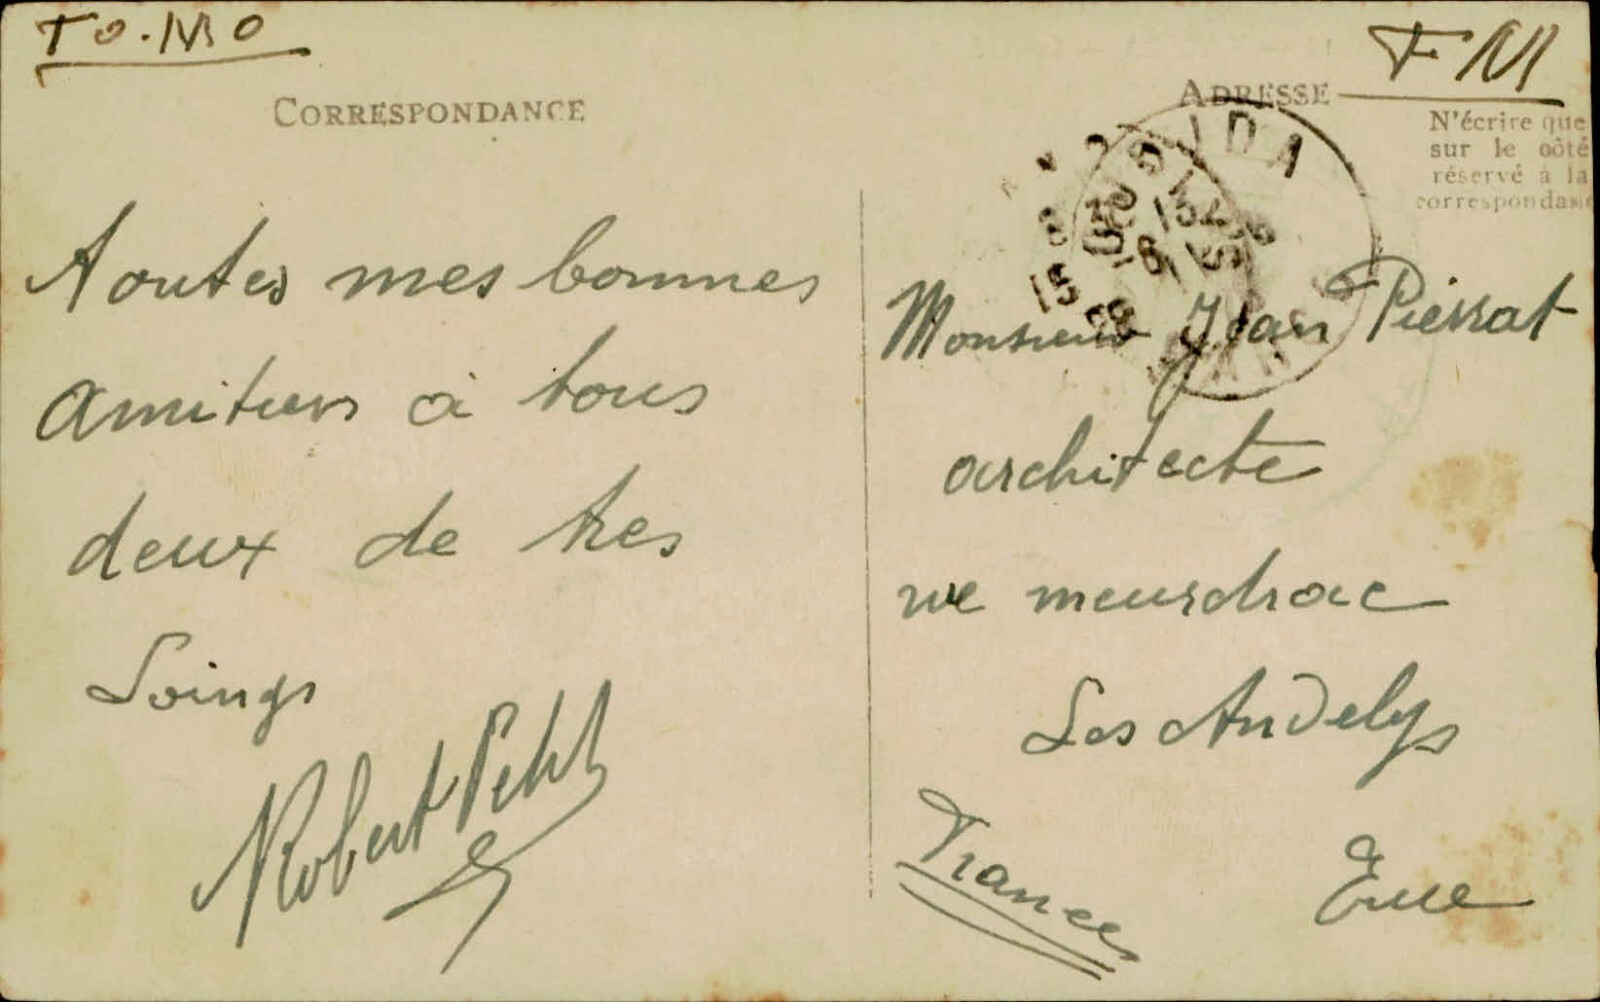 TO.MO
CORRESPONDANCE
Toutes mes bonnes
amitiés à tous
deux de très
Loings
Robert Petit
FM
ADRESSE
N'écrire que
sur le côté
réservé à la
correspondance
OUJDA
Monsieur Jean Pierrat
architecte
rue meurdrac
Les Andelys
Eure
France